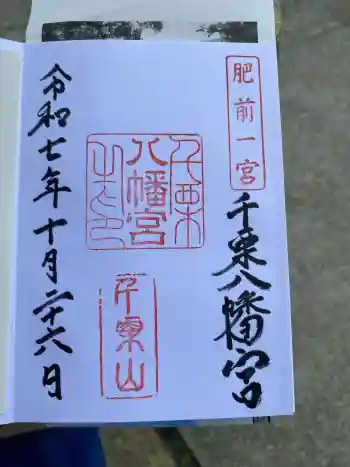 肥前一宮
千栗八幡宮
千栗八幡宮之印
千栗山
令和七年十月二十六日